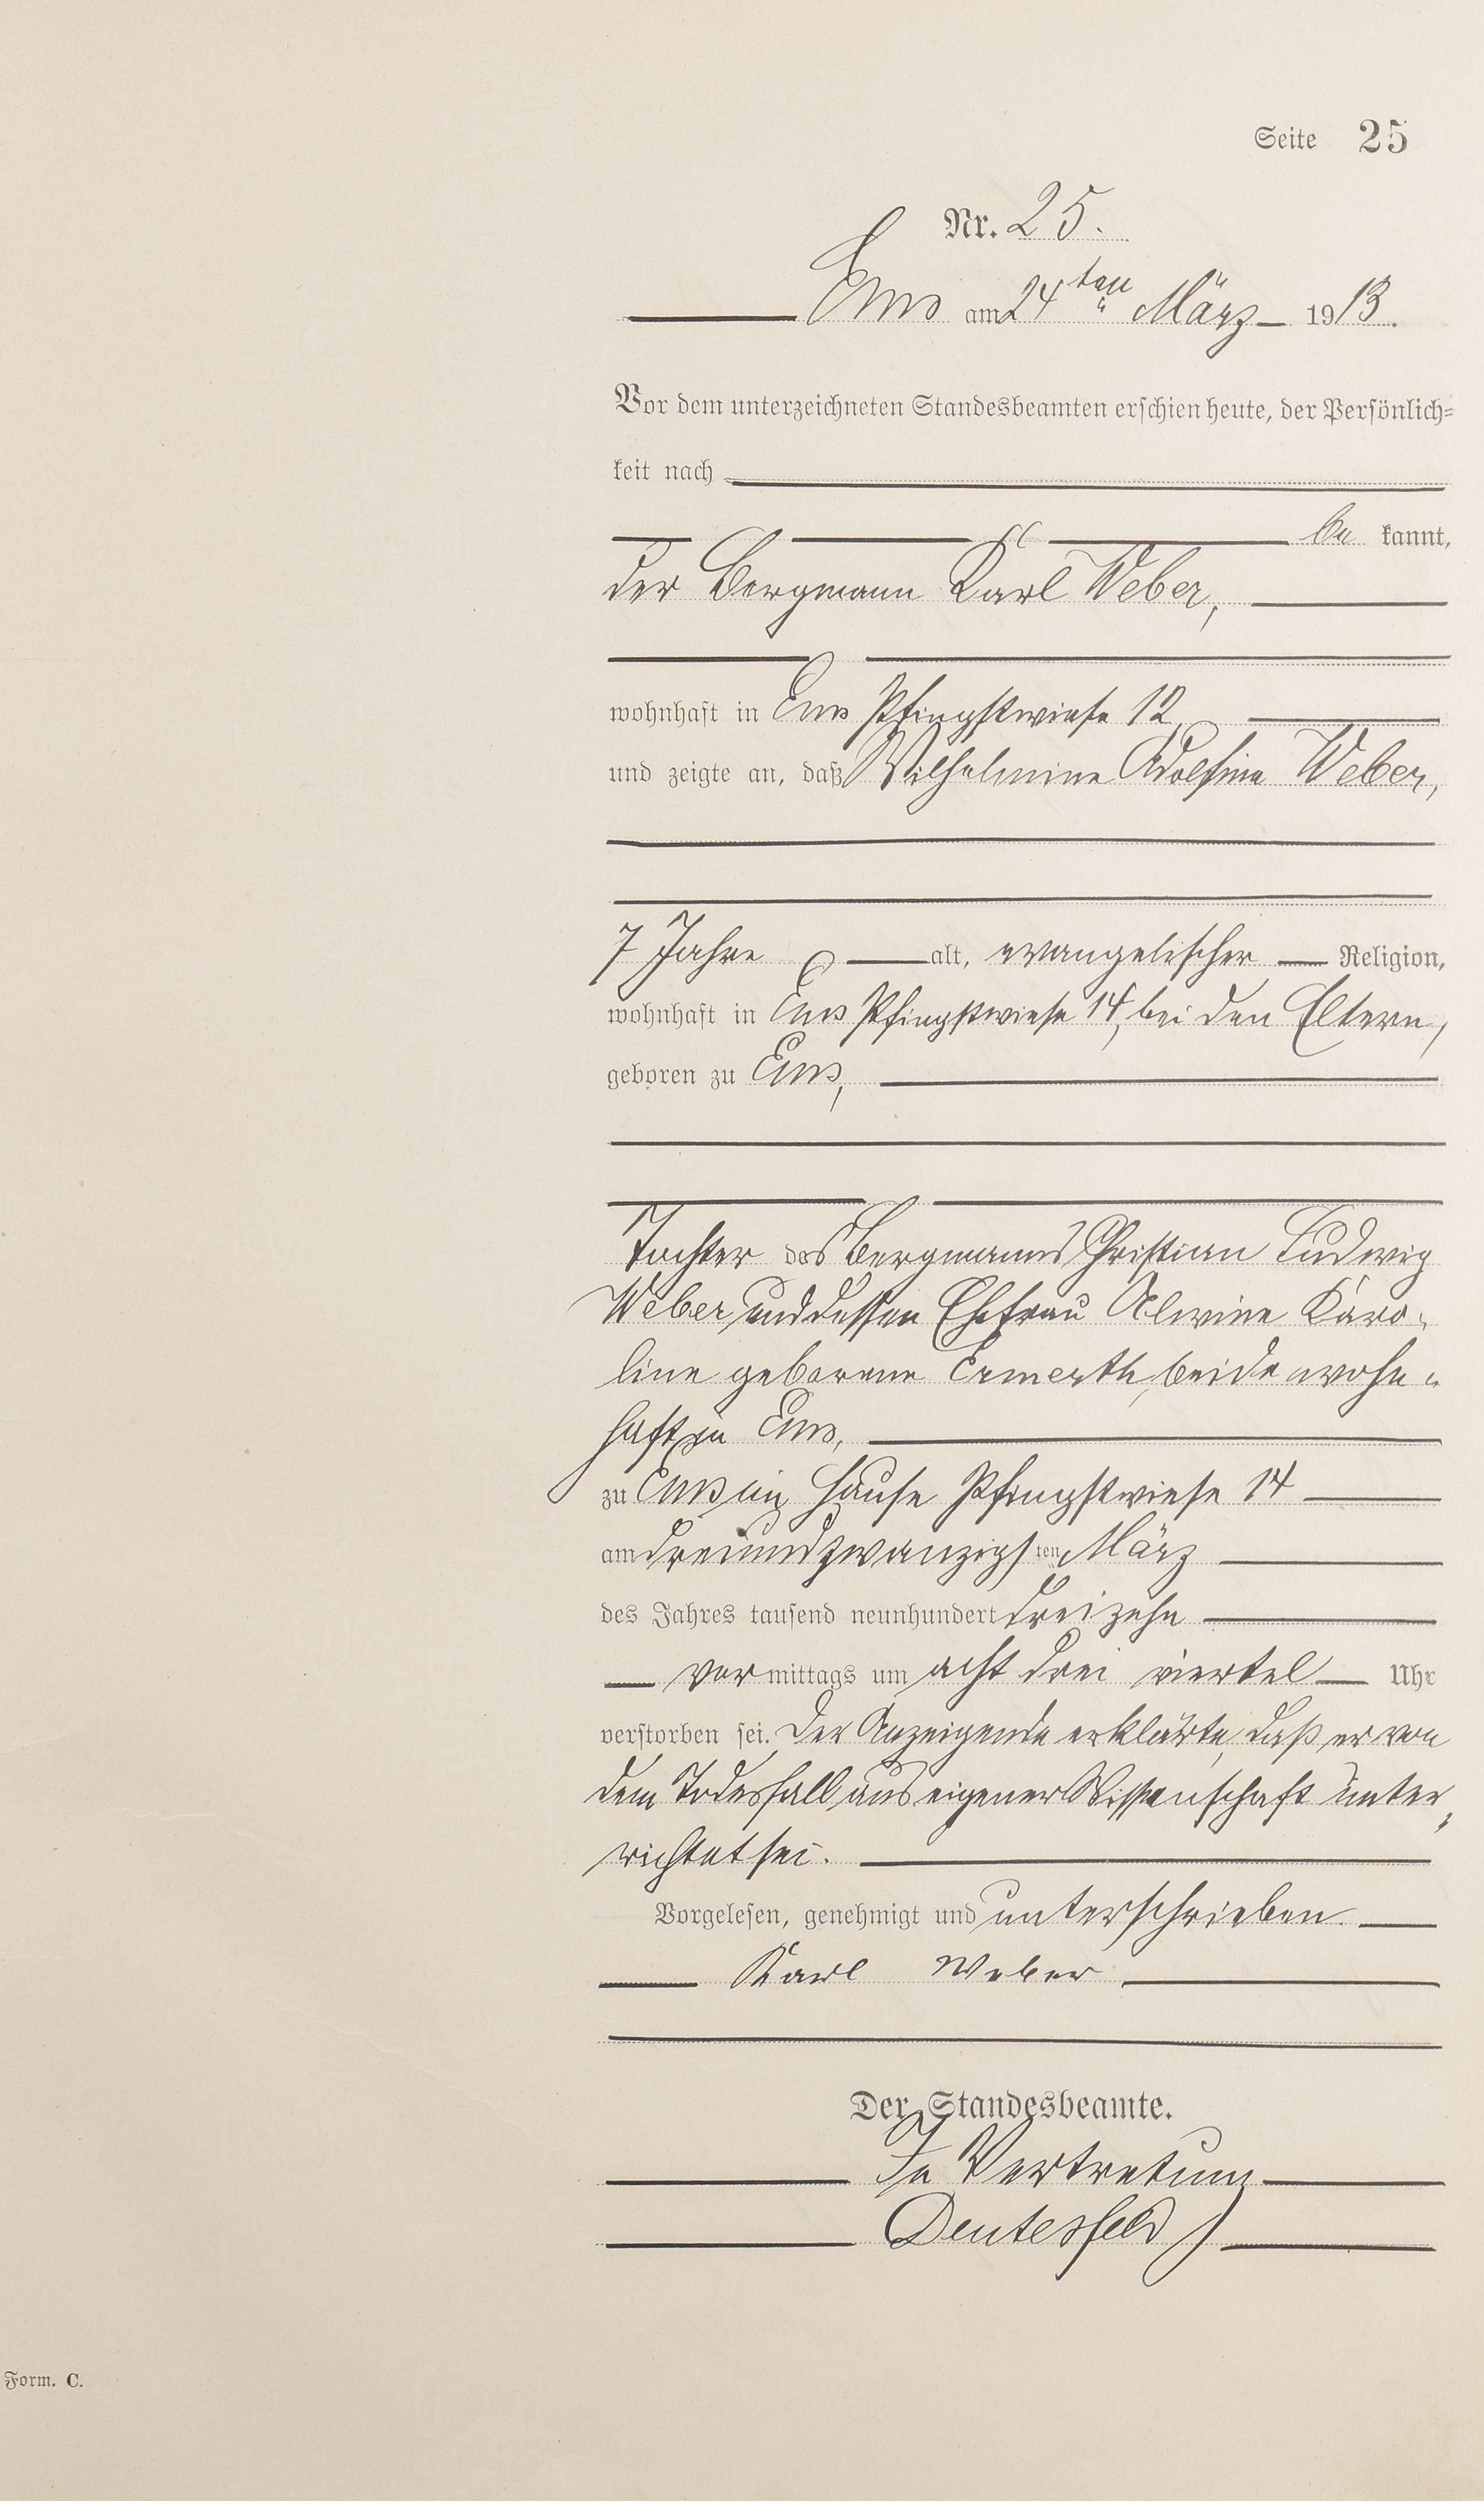 Seite 25
Nr. 25.
Ems am 24ten März 1913.
Vor dem unterzeichneten Standesbeamten erschien heute, der Persönlich=
keit nach
be kannt,
der Bergmann Karl Weber,
wohnhaft in Ems Pfingstwiese 12
und zeigte an, daß Wilhelmine Adolfine Weber,
7 Jahre alt, evangelischer Religion,
wohnhaft in Ems Pfingstwiese 14, bei den Eltern,
geboren zu Ems,
Tochter des Bergmanns Christian Ludwig
Weber und dessen Ehefrau Alwine Karo-
line geborene Ermerth, beide wohn-
haft in Ems,
zu Ems im Hause Pfingstwiese 14
am dreiundzwanzigsten März
des Jahres tausend neunhundert dreizehn
vor mittags um acht drei viertel Uhr
verstorben sei. Der Anzeigende erklärte, daß er von
dem Todesfall aus eigener Wissenschaft unter-
richtet sei.
Vorgelesen, genehmigt und unterschrieben.
Karl Weber
Der Standesbeamte.
In Vertretung
Deutesfeld
Form. C.